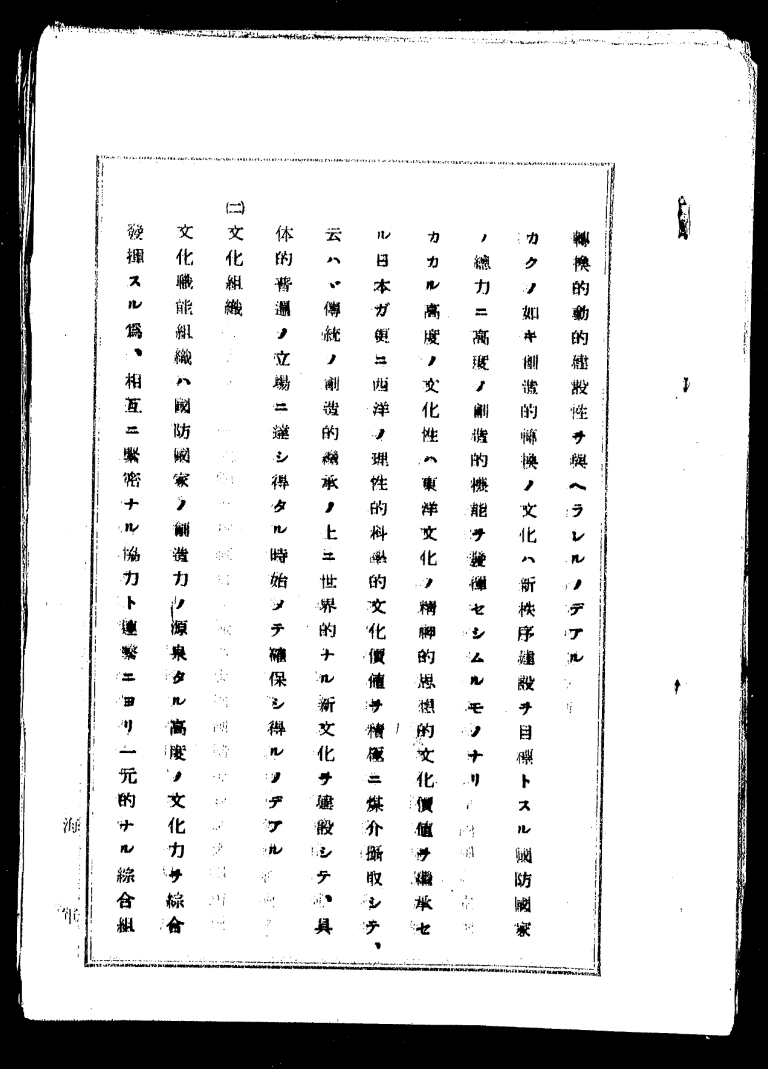 轉換的動的建設性ヲ與ヘラレルノデアル
カクノ如キ創造的轉換ノ文化ハ新秩序建設ヲ目標トスル國防國家
ノ總力ニ高度ノ創造的機能ヲ發揮セシムルモノナリ
カカル高度ノ文化性ハ東洋文化ノ精神的思想的文化價値ヲ繼承セ
ル日本ガ更ニ西洋ノ理性的科學的文化價値ヲ積極ニ媒介攝取シテ、
云ハヾ傳統ノ創造的繼承ノ上ニ世界的ナル新文化ヲ建設シテ、具
体的普遍ノ立場ニ達シ得タル時始メテ確保シ得ルノデアル
㈡文化組織
文化職能組織ハ國防國家ノ創造力ノ源泉タル高度ノ文化力ヲ綜合
發揮スル爲、相互ニ緊密ナル協力ト連繫ニヨリ一元的ナル綜合組
海軍